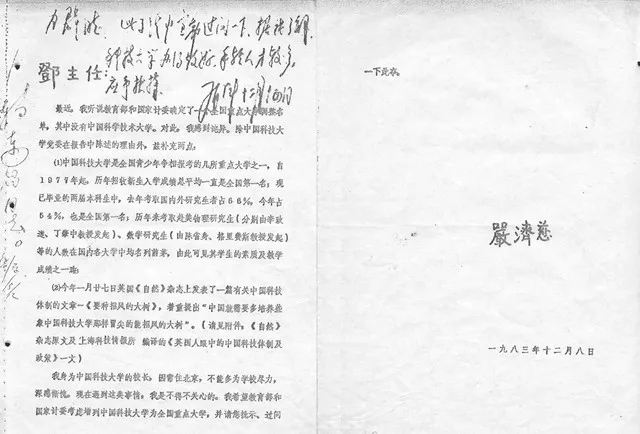 鄧主任:
最近,我听说教育部和国家计委决定了
全国重点大学调整名
单,其中没有中国科学技术大学。对此,我感到诧异。除中国科技大
学党委在报告中陈述的理由外,兹补充两点:
⑴中国科技大学是全国青少年争相报考的几所重点大学之一,自
1977年起,历年招收新生入学成绩总平均一直是全国第一名;现
已毕业的两届本科生中,去年考取国内外研究生者占66%,今年占
54%,也是全国第一名;历年来考取赴美物理研究生(分别由李政
道、丁肇中教授发起)、数学研究生(由陈省身、格里费斯教授发起)
等的人数在国内各大学中均名列前茅,由此可见其学生的素质及教学
成绩之一斑;
⑵今年一月廿七日英国《自然》杂志上发表了一篇有关中国科技
体制的文章—《要种招风的大树》,着重提出“中国就需要多培养些
象中国科技大学那样冒尖的能招风的大树”。(请见附件:《自然》
杂志原文及上海科技情报所编译的《英国人眼中的中国科技体制及
政策》一文)
我身为中国科技大学的校长,因常住北京,不能多为学校尽力,
深感惭愧。现在遇到这类事情,我是不得不关心的。我希望教育部和
国家计委考虑增列中国科技大学为全国重点大学,并请您批示、过问
一下此事。
嚴濟慈
一九八三年十二月八日